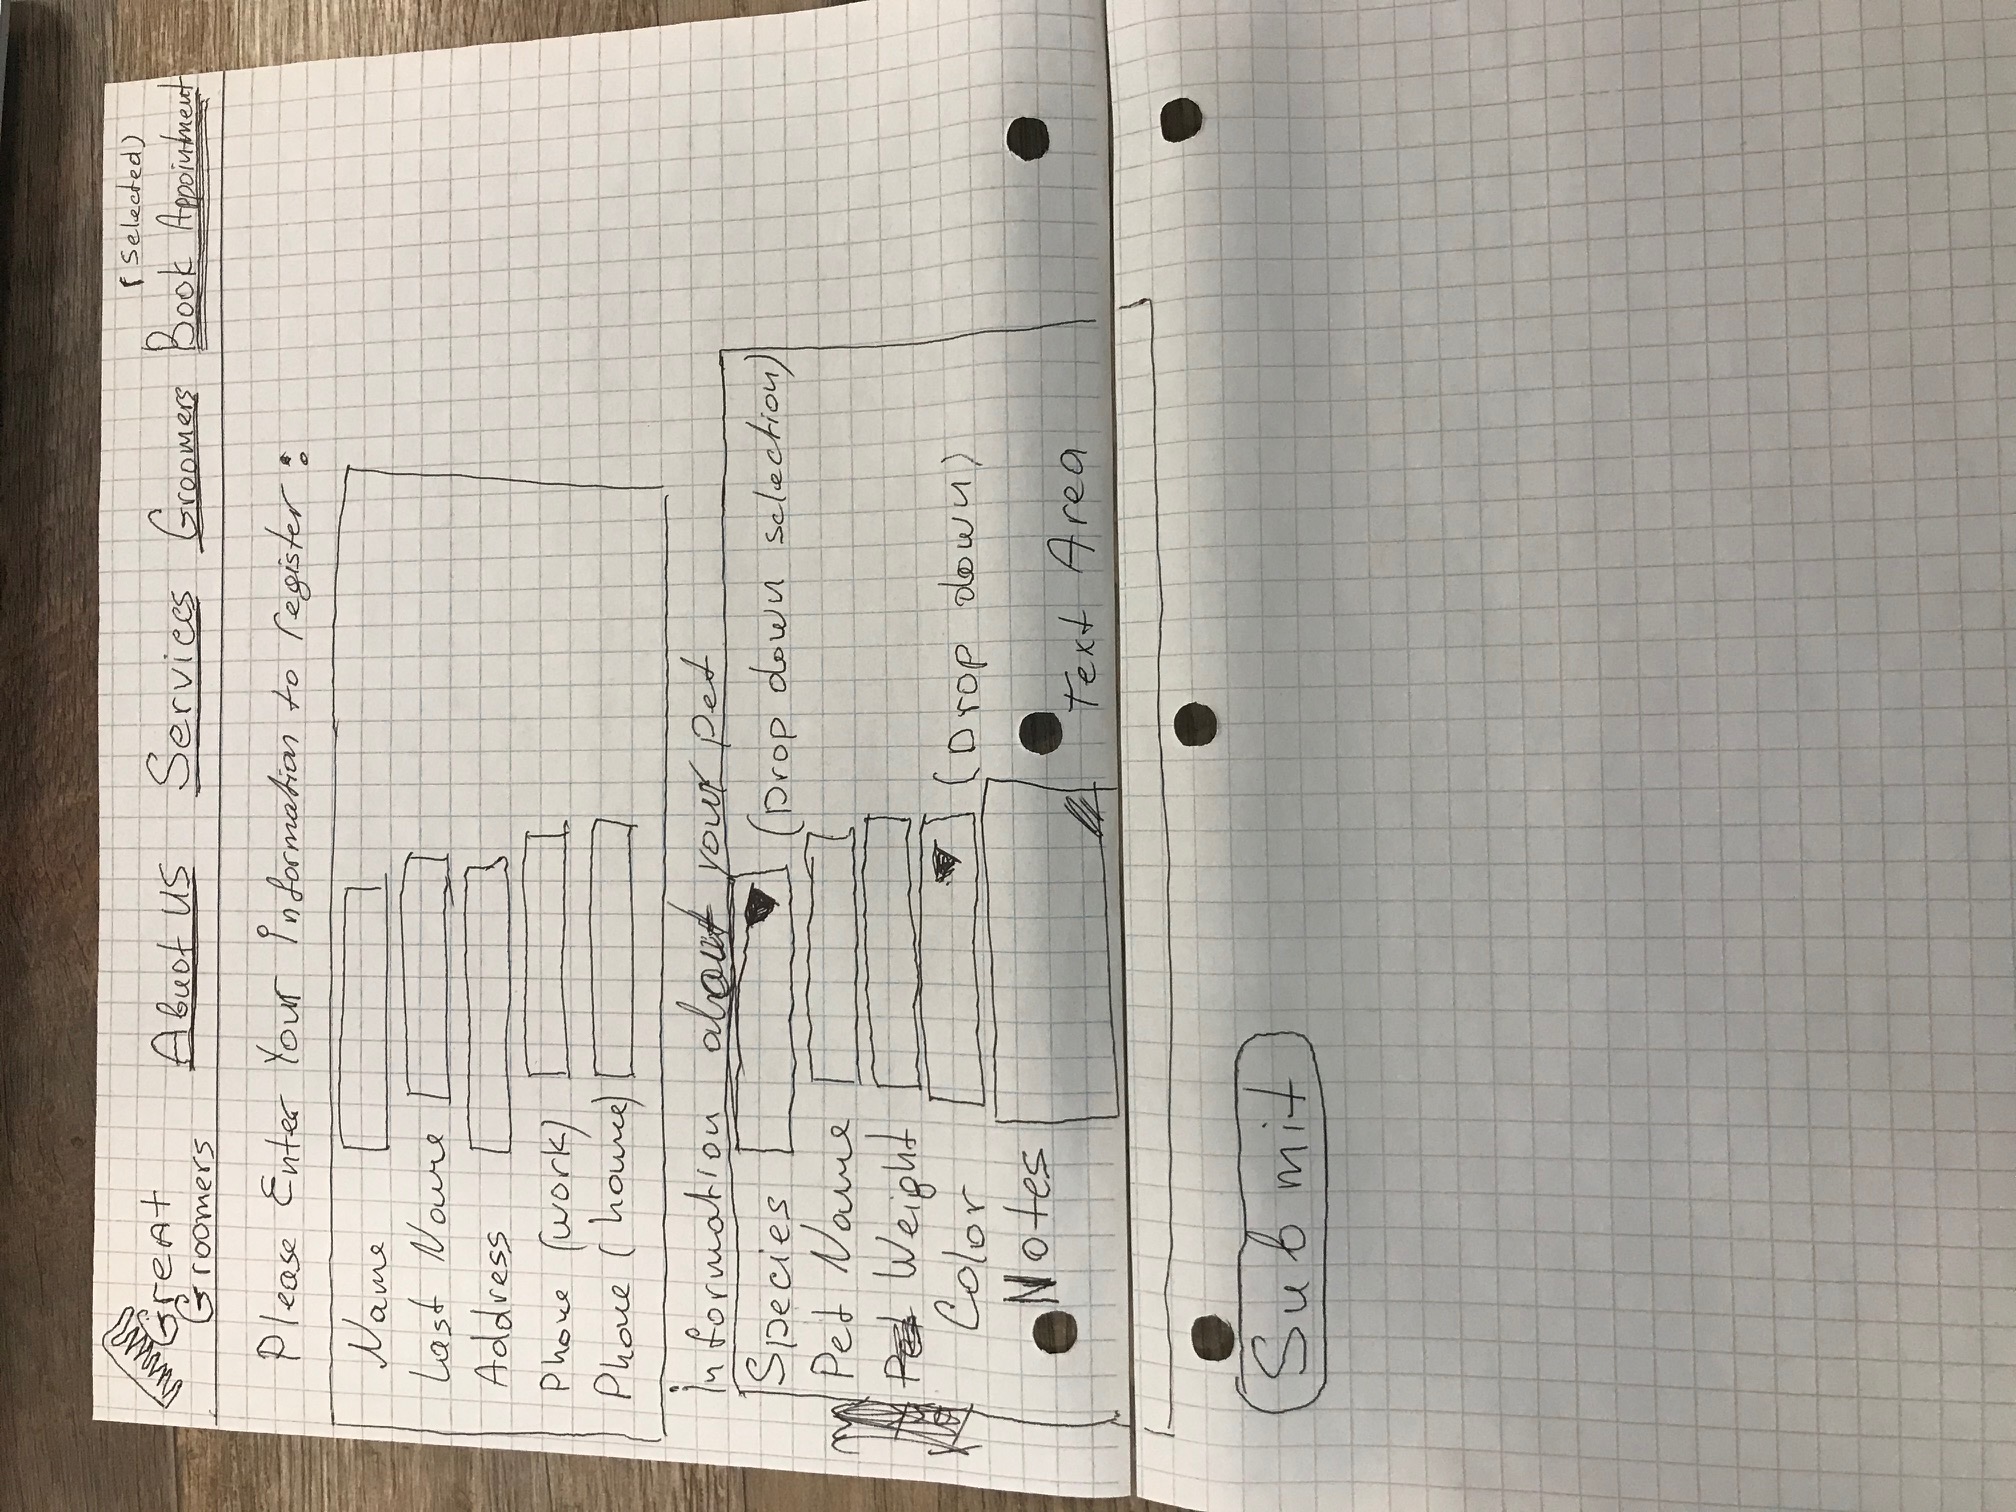 (Selected)
Great
Groomers
Abuot US Services Groomers Book Appointment
Please Enter Your information to register:
Name
Last Name
Address
Phone (work)
Phone (home)
Information about your pet
Species (Drop down selection)
Pet Name
Weight
Color (Drop down)
Notes
Text Area
Submit